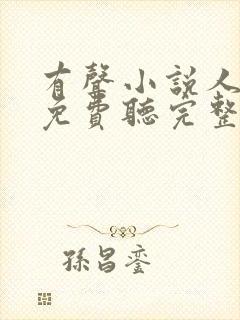 有聲小説人
免費聽完整
孫昌鑾